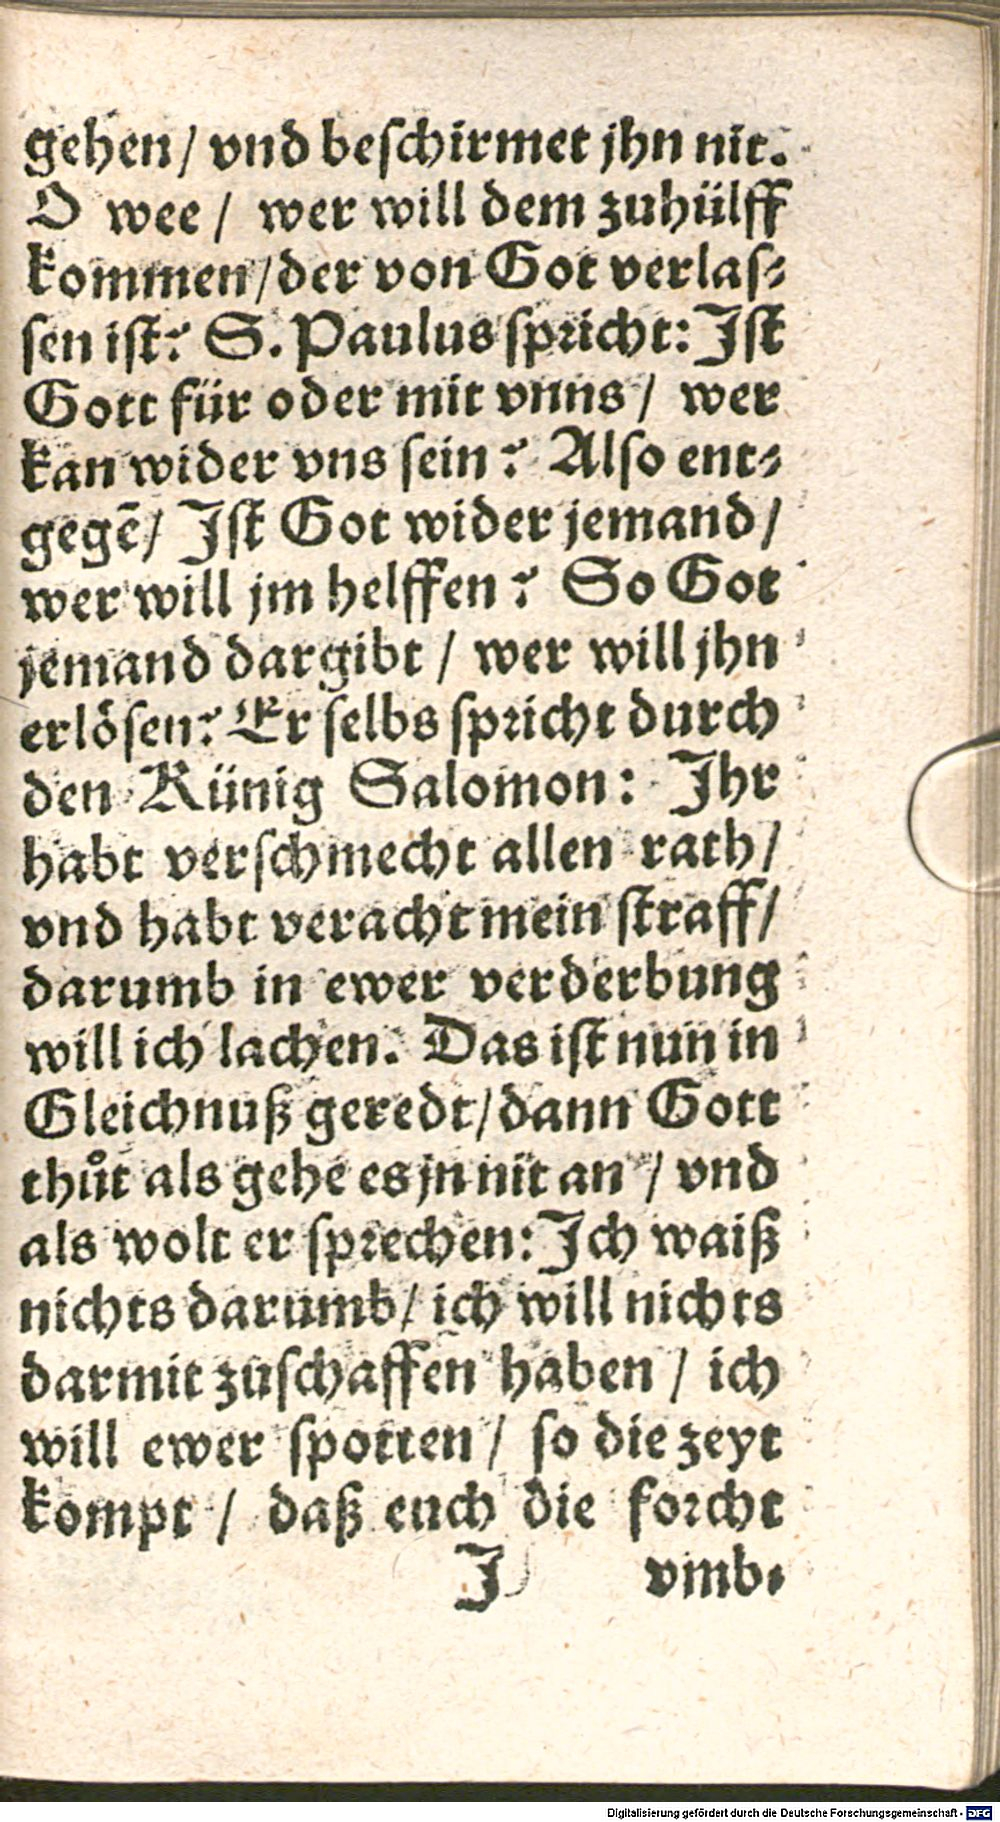 gehen / vnd beſchirmet jhn nit.
O wee / wer will dem zuhülff
kommen / der von Got verlaſ⸗
ſen iſt? S. Paulus ſpricht: Iſt
Gott für oder mit vnns / wer
kan wider vns ſein? Alſo ent⸗
gegẽ / Iſt Got wider jemand /
wer will jm helffen? So Got
jemand dargibt / wer will jhn
erlöſen? Er ſelbs ſpricht durch
den Künig Salomon: Ihr
habt verſchmecht allen rath /
vnd habt veracht mein ſtraff /
darumb in ewer verderbung
will ich lachen. Das iſt nun in
Gleichnuß geredt / dann Gott
thuͦt als gehe es jn nit an / vnd
als wolt er ſprechen: Ich waiß
nichts darumb / ich will nichts
darmit zuſchaffen haben / ich
will ewer ſpotten / ſo die zeyt
kompt / daß euch die forcht
I vmb⸗
Digitalisierung gefördert durch die Deutsche Forschungsgemeinschaft - DFG